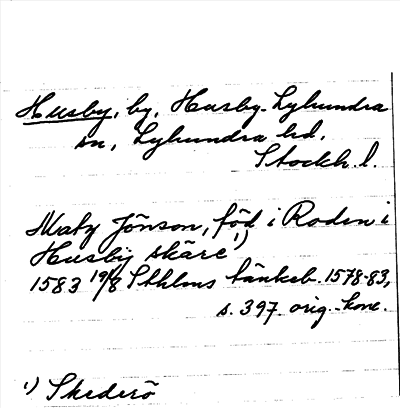 Husby, by, Husby-Lyhundra
sn, Lyhundra hd,
Stockh. l.
Matz Jönson, föd i Roden i
Husby skäre 1)
1583 19/8 Sthlms tänkeb. 1578-83,
s. 397 orig. -konc.
1) Skederö